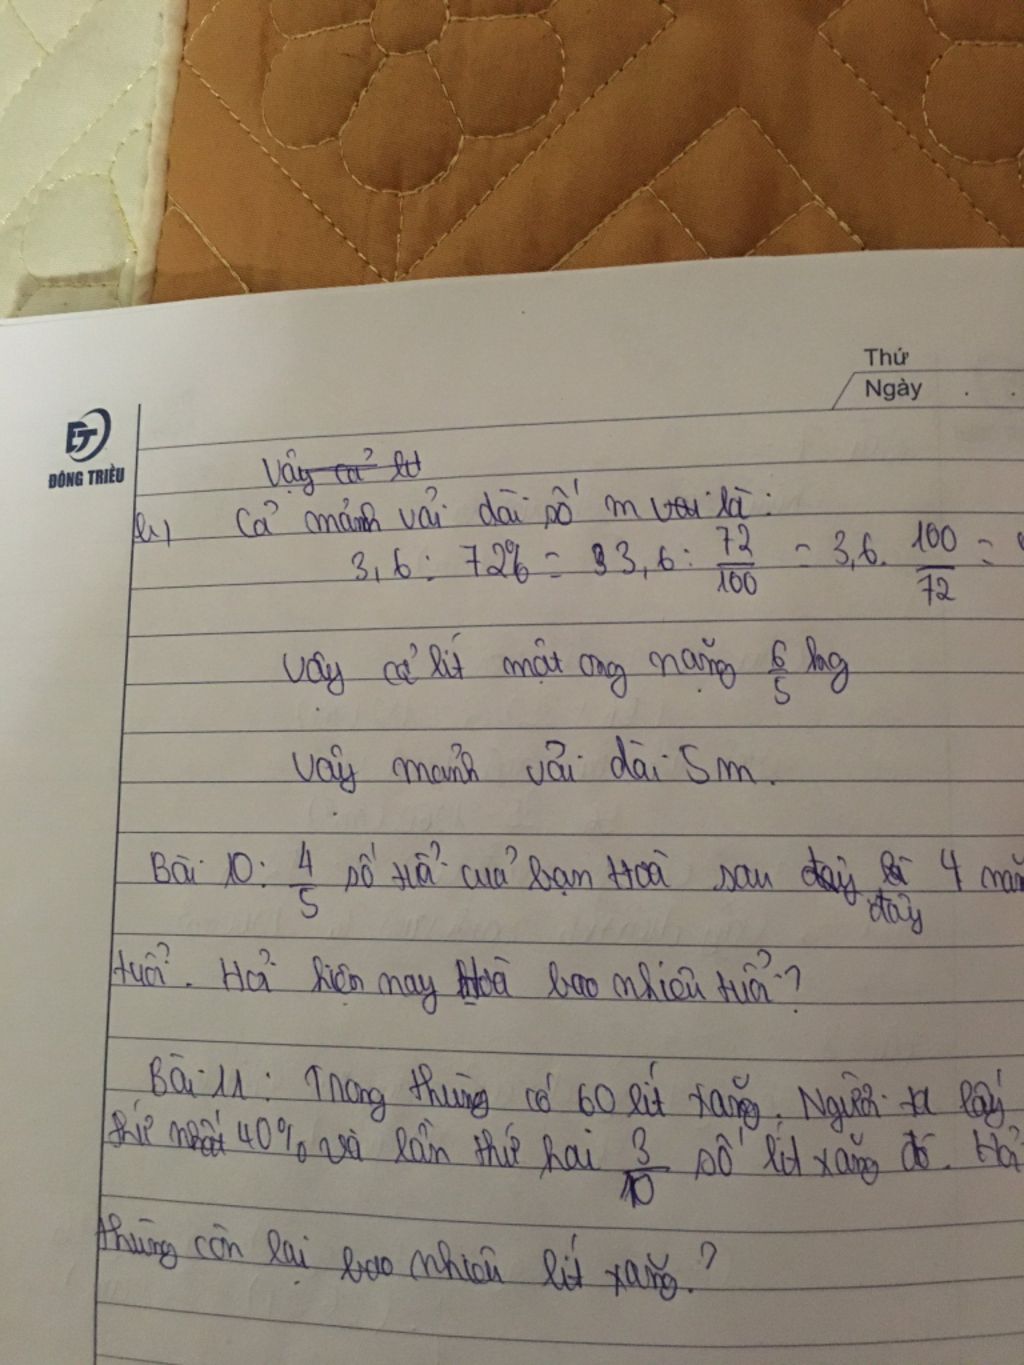 Thứ
Ngày
ĐT
ĐÔNG TRIỀU
Vậy cả lít
b, Cả mảnh vải dài số m vải là:
3,6 : 72% = 3,6 : 72/100 = 3,6. 100/72 =
Vậy cả lít mật ong nặng 6/5 kg
Vậy mảnh vải dài 5m.
Bài 10: 4/5 số tuổi của bạn Hoà sau đây 4 năm
đây
tuổi. Hỏi hiện nay Hoà bao nhiêu tuổi?
Bài 11: Trong thùng có 60 lít xăng. Người ta lấy
thứ nhất 40% và lần thứ hai 3/10 số lít xăng đó. Hỏi
thùng còn lại bao nhiêu lít xăng?